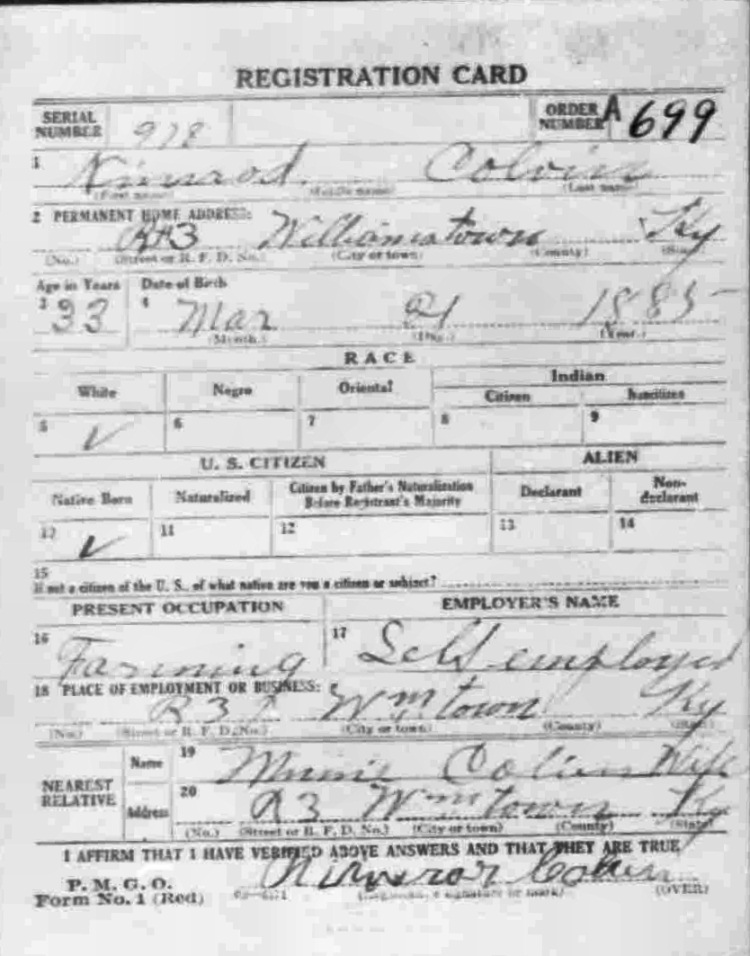 REGISTRATION CARD
SERIAL NUMBER 978 ORDER NUMBER A 699
1 Nimrod Colvin
(First name) (Middle name) (Last name)
2 PERMANENT HOME ADDRESS:
RR3 Williamstown Ky
(No.) (Street or R. F. D. No.) (City or town) (County) (State)
Age in Years Date of Birth
3 33 4 Mar 21 1885
(Month.) (Day.) (Year.)
RACE
White Negro Oriental Indian
Citizen Noncitizen
5 ✓ 6 7 8 9
U. S. CITIZEN ALIEN
Native Born Naturalized Citizen by Father's Naturalization Before Registrant's Majority Declarant Non-declarant
10 ✓ 11 12 13 14
15
If not a citizen of the U. S., of what nation are you a citizen or subject?
PRESENT OCCUPATION EMPLOYER'S NAME
16 Farming 17 Self employed
18 PLACE OF EMPLOYMENT OR BUSINESS:
R 3 Wmtown Ky
(No.) (Street or R. F. D. No.) (City or town) (County) (State)
NEAREST RELATIVE
Name 19 Colvin Wife
Address 20 R 3 Wmtown Ky
(No.) (Street or R. F. D. No.) (City or town) (County) (State)
I AFFIRM THAT I HAVE VERIFIED ABOVE ANSWERS AND THAT THEY ARE TRUE
P. M. G. O.
Form No. 1 (Red) Nimrod Colvin
(Registrant's signature or mark) (OVER)